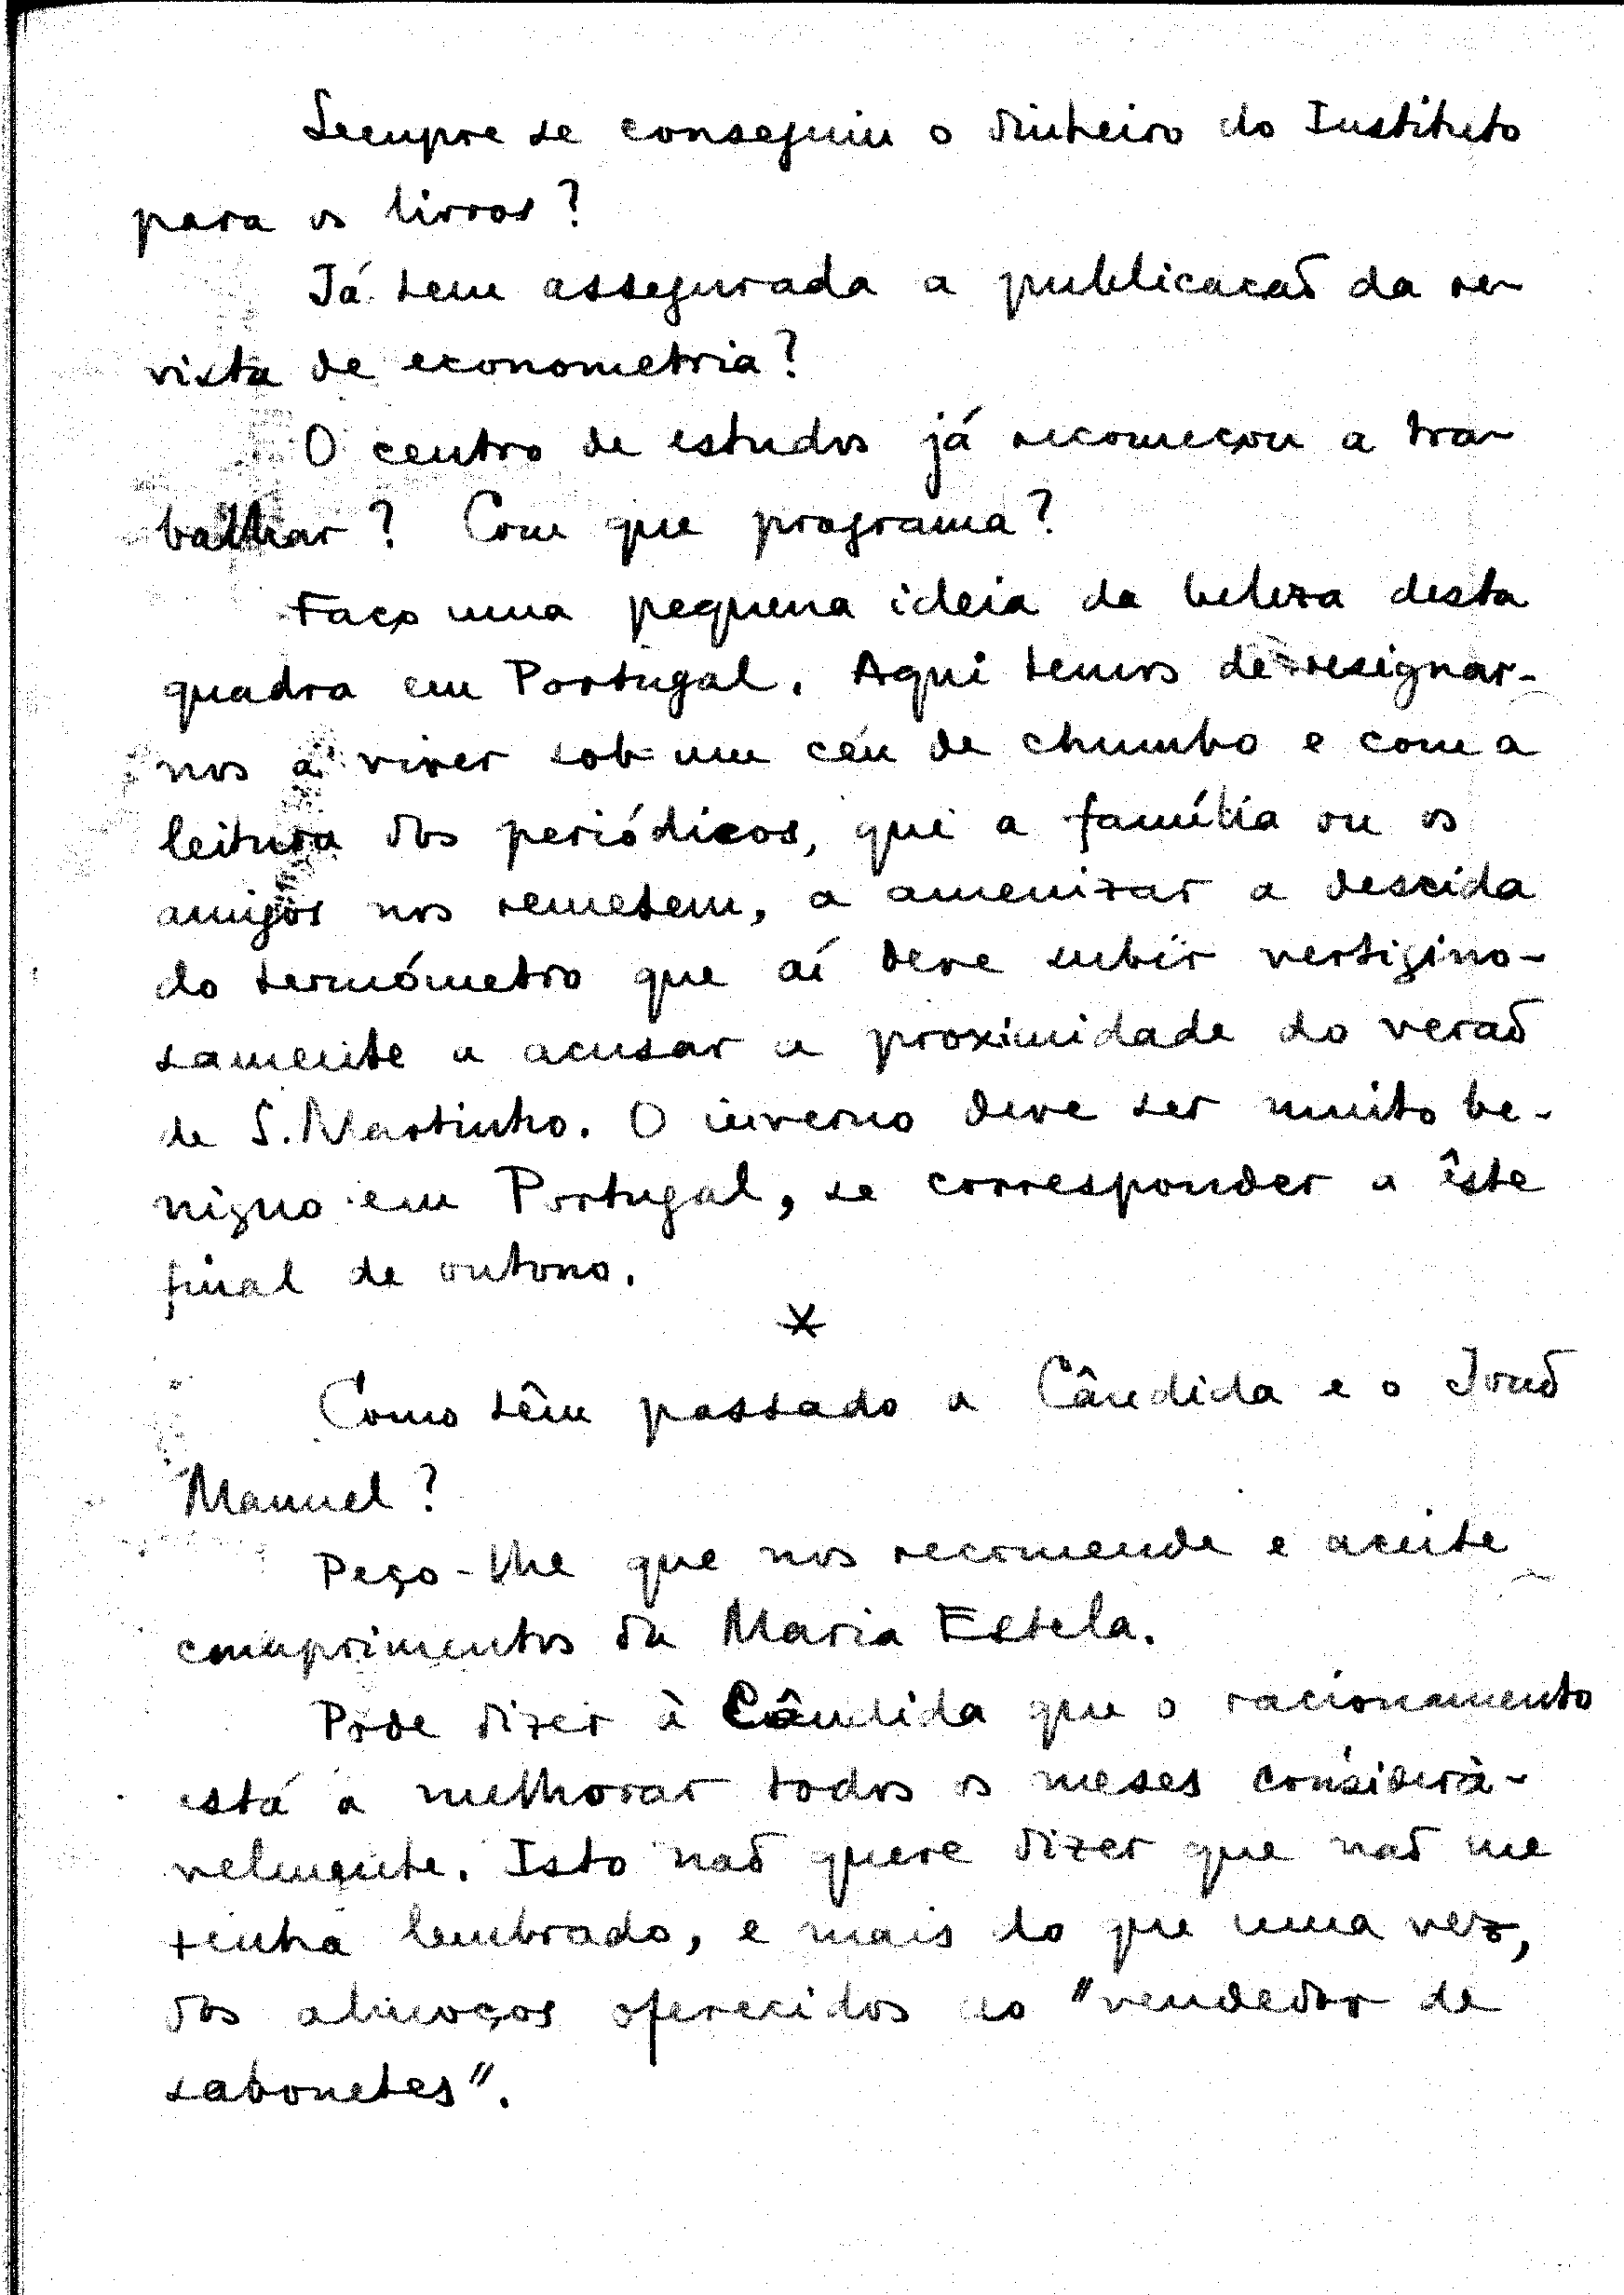 Sempre se conseguiu o dinheiro do Instituto
para os livros?
Já tem assegurada a publicacaõ da re-
vista de econometria?
O centro de estudos já recomeçou a tra-
balhar? Com que programa?
Faço uma pequena ideia da beleza desta
quadra em Portugal. Aqui temos de resignar-
nos a viver sob um céu de chumbo e com a
leitura dos periódicos, que a família ou os
amigos nos remetem, a amenizar a descida
do termómetro que aí deve subir vertigino-
samente a acusar a proximidade do veraõ
de S. Martinho. O inverno deve ser muito be-
nigno em Portugal, se corresponder a êste
final de outono.
*
Como têm passado a Cândida e o Joaõ
Manuel?
Peço-lhe que nos recomende e aceite
comprimentos da Maria Estela.
Pode dizer à Cândida que o racionamento
está a melhorar todos os meses considerà-
velmente. Isto naõ quere dizer que naõ me
tenha lembrado, e mais do que uma vez,
dos almoços oferecidos ao "vendedor de
sabonetes".